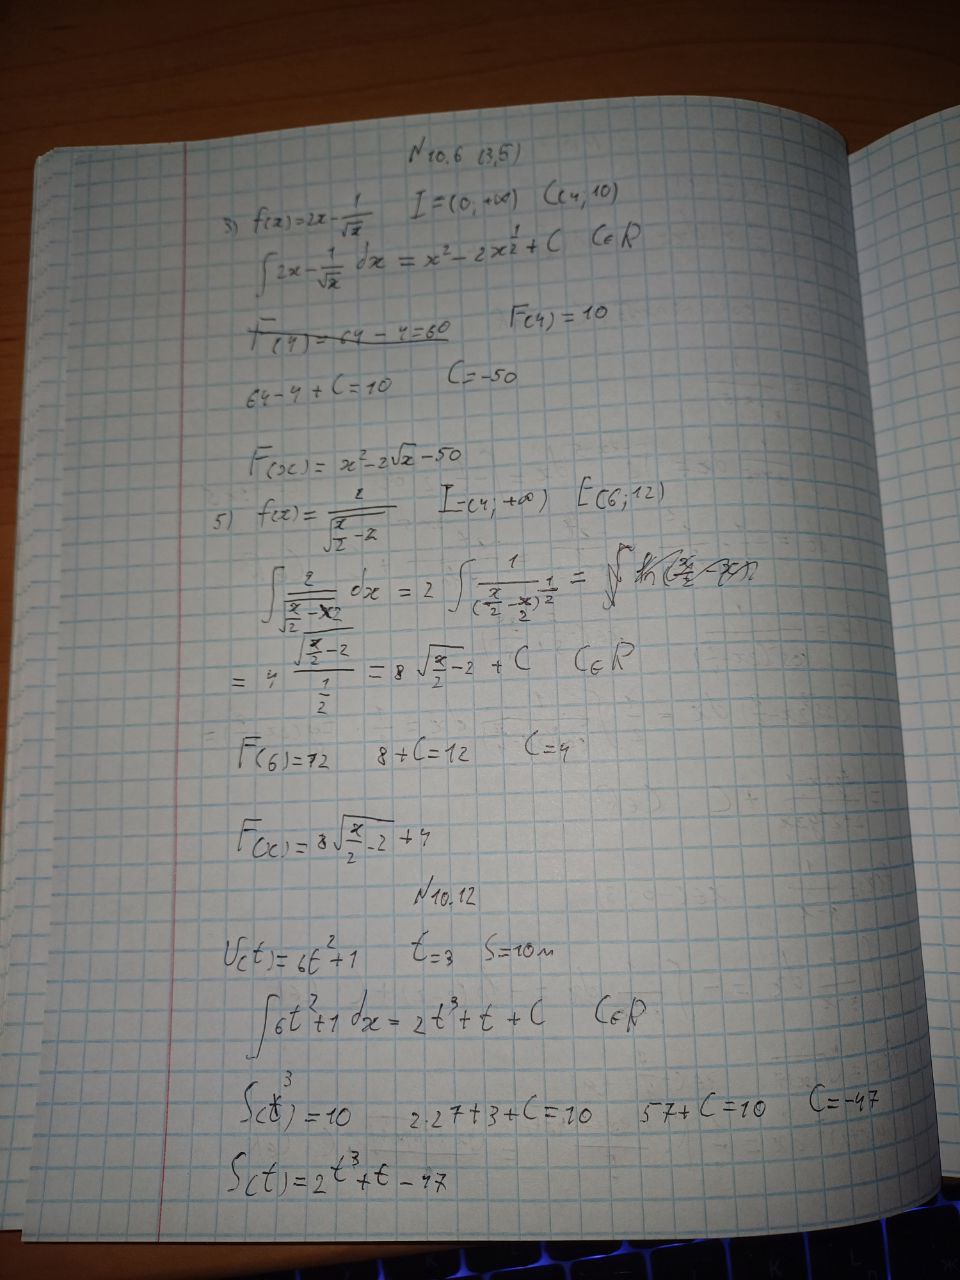 N10.6 (3,5)
3) f(x)=2x-1/√x I=(0,+∞) C(4;10)
∫2x-1/√x dx = x²-2x^(1/2)+C C∈R
F(4)=64-4=60 F(4)=10
64-4+C=10 C=-50
F(x)=x²-2√x-50
5) f(x)=2/√(x/2-2) I=(4;+∞) E(6;12)
∫2/√(x/2-2) dx = 2∫1/(x/2-2)^(1/2) =
= 4 √(x/2-2)/(1/2) = 8√(x/2-2)+C C∈R
F(6)=12 8+C=12 C=4
F(x)=8√(x/2-2)+4
N10.12
V(t)=6t²+1 t=3 S=10м
∫6t²+1 dx = 2t³+t+C C∈R
S(3)=10 2·27+3+C=10 57+C=10 C=-47
S(t)=2t³+t-47